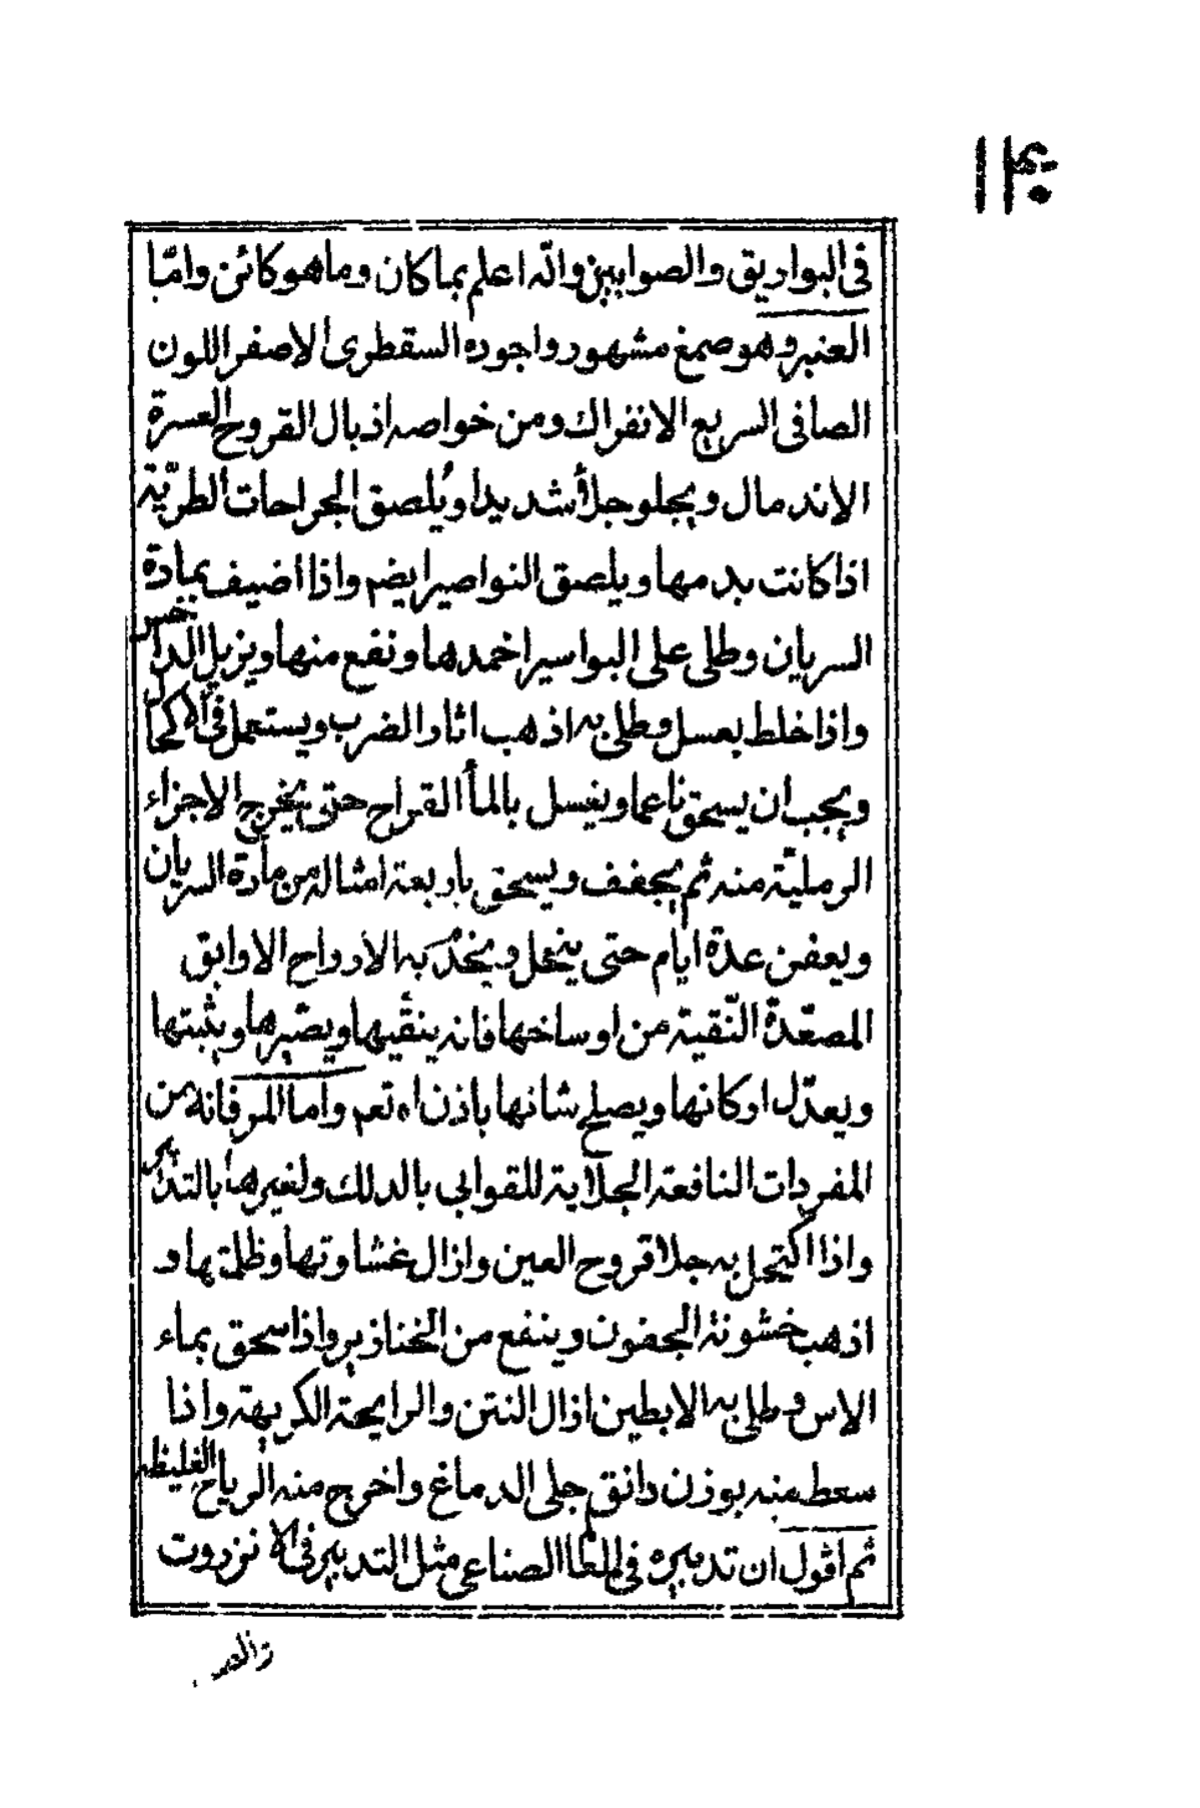 في البواريق والصوابين والله اعلم بما كان وما هو كائن وامّا
العنبر وهو صمغ مشهور واجوده السقطرى الاصفر اللون
الصافى السريع الانفراك ومن خواصه اذبال القروح العسرة
الاندمال ويجلو جلأ شديدا ويُلصق الجراحات الطريّة
اذا كانت بدمها ويلصق النواصير ايضم واذا اضيف بمادة
السريان وطلى على البواسير اخمدها ونفع منها ويزيل الداخس
واذا خلط بعسل وطلى به اذهب اثار الضرب ويستعمل في الاكحال
ويجب ان يسحق ناعما ويغسل بالمأ القراح حتى يخرج الاجزاء
الرمليّة منه ثم يجفف ويسحق باربعة امثاله من مادة السريان
ويعفن عدة ايام حتى ينحل ويخدم به الارواح الاوابق
المصعّدة النّقية من اوساخها فانه ينقّيها ويصّبرها ويثبتها
ويعدّل اركانها ويصلح شانها باذن اه تعم واما المر فانه من
المفردات النافعة الجلاية للقوابى بالدلك ولغيرها بالتدبير
واذا اكتحل به جلا قروح العين وازال غشاوتها وظلمتها و
اذهب خشونة الجفون وينفع من الخنازير واذا سحق بماء
الاس وطلى به الابطين ازال النتن والرايحة الكريهة واذا
سعط منه بوزن دانق جلى الدماغ واخرج منه الرياح الغليظه
ثم اقول ان تدبيره في العلم الصناعى مثل التدبير في الانزروت